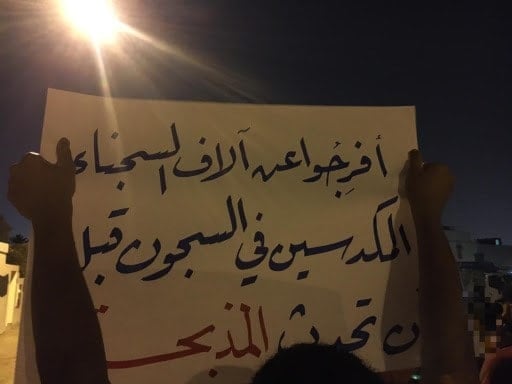 أفرِجُوا عن آلاف السجناء
المكدسين في السجون قبل
أن تحدث المذبحة